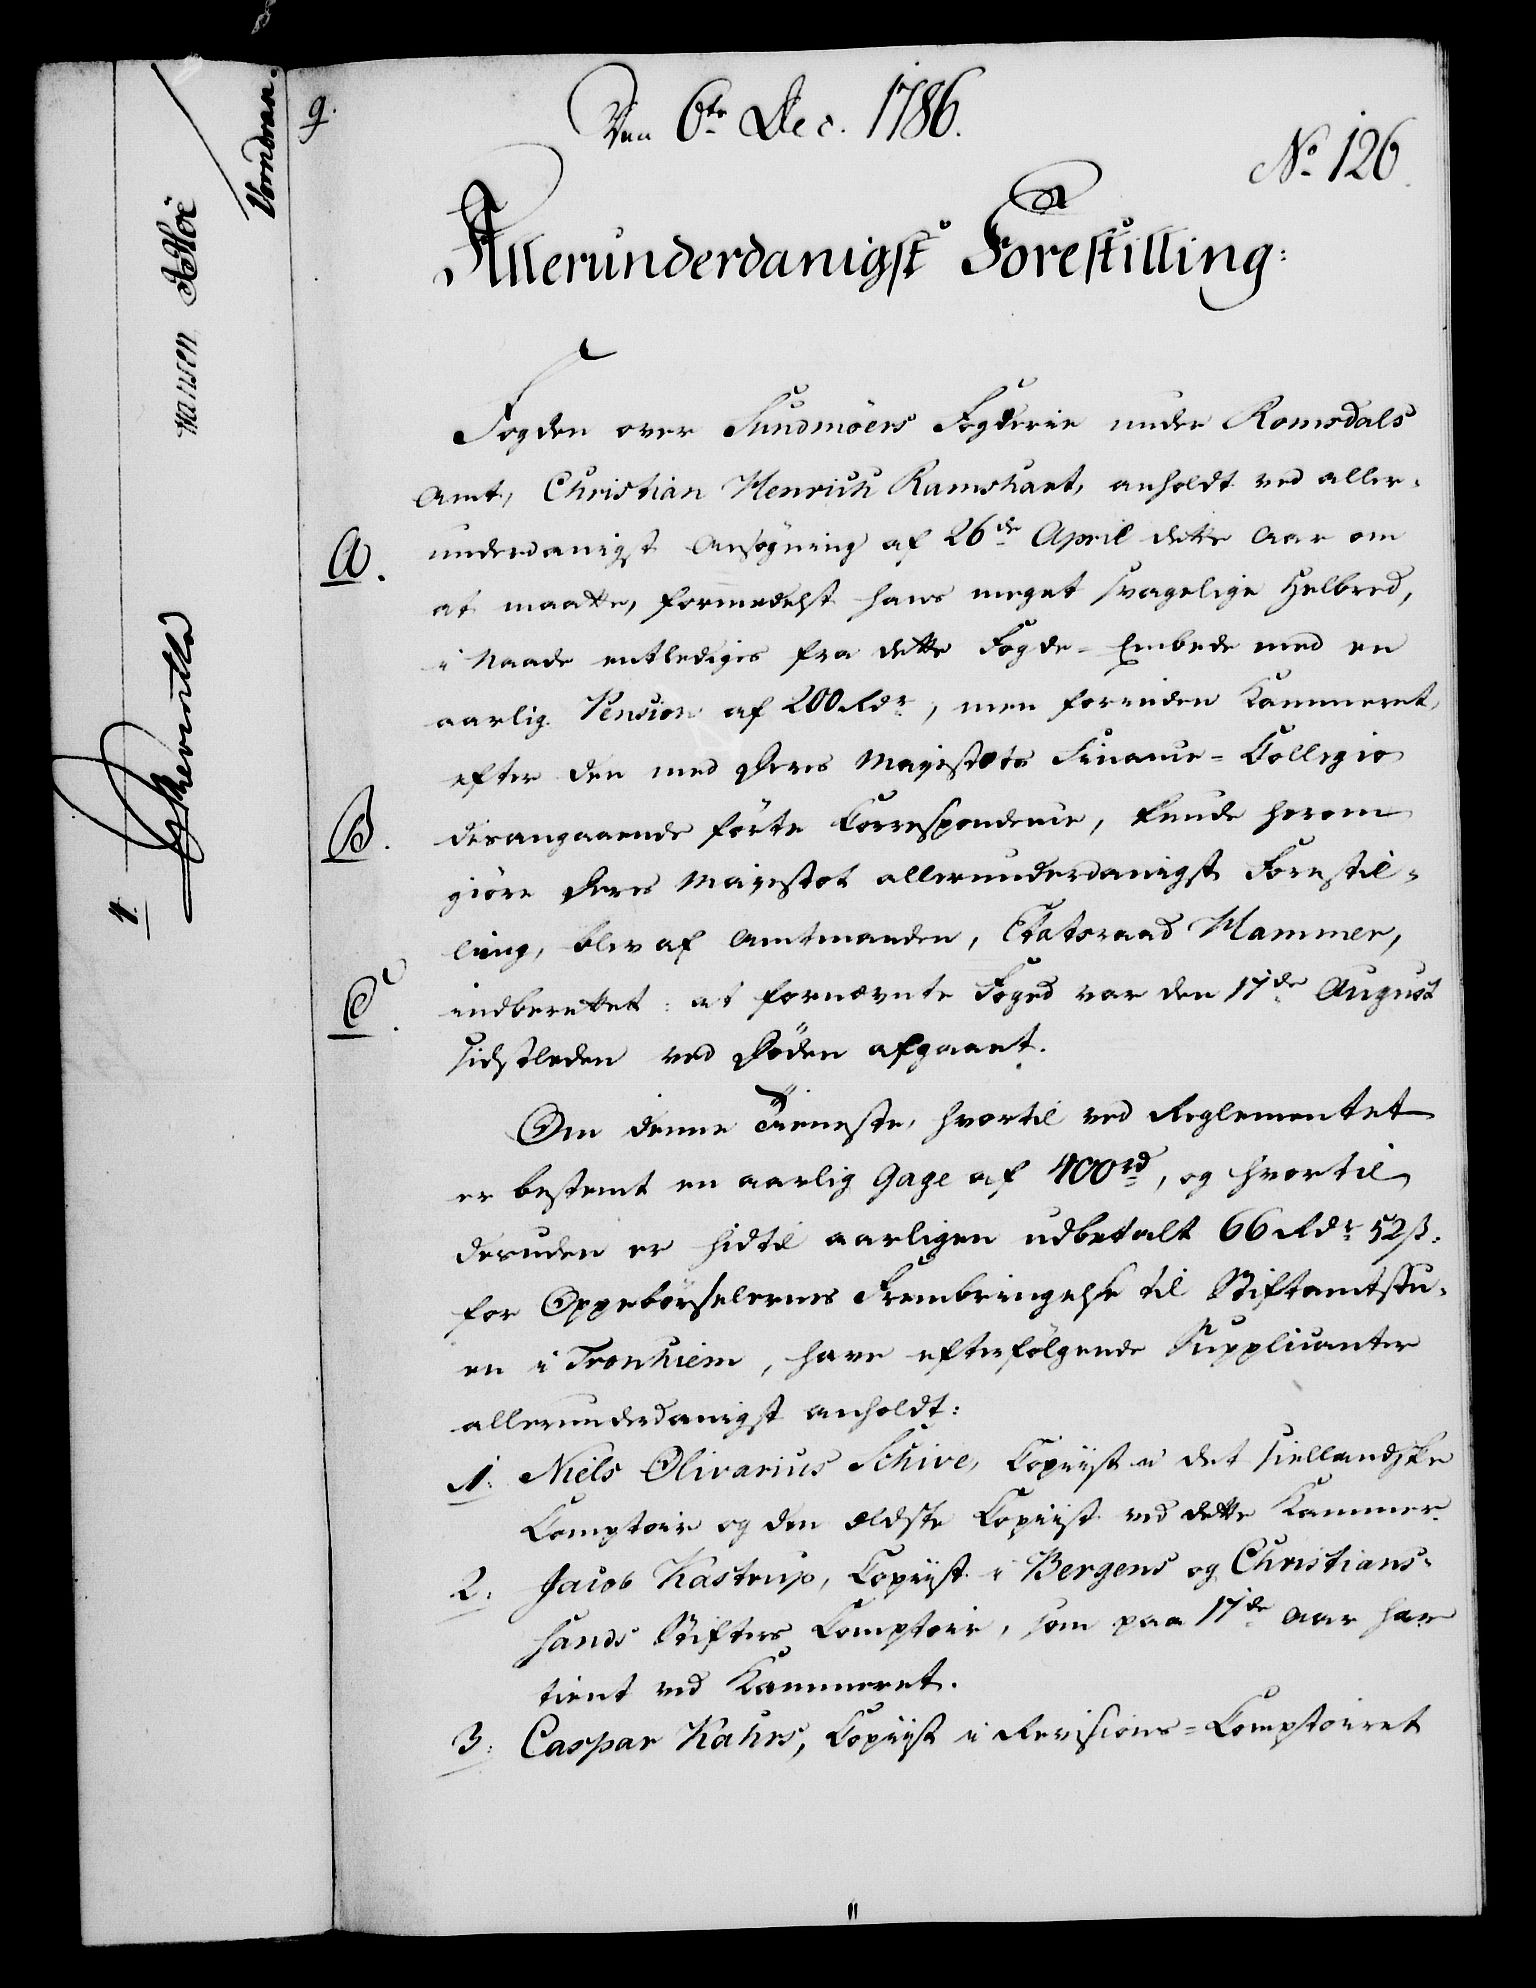 9.
Den 6te Dec. 1786.
No 126.
Allerunderdanigst Forestilling:
Fogden over Sundmöers Fogderie under Romsdals
Amt, Christian Henrich Ramshart, anholdt ved aller-
A. underdanigst Ansøgning af 26de April dette Aar om
at maatte, formedelst hans meget svagelige Helbred,
i Naade entlediges fra dette Fogde-Embede med en
aarlig Pension af 200 Rdr, men forinden Kammeret,
efter den med Deres Majestæts Finance-Collegio
B. desangaaende förte Correspondence, kunde herom
giöre Deres Majestæt allerunderdanigst Forestil-
ling, blev af Amtmanden, Etatsraad Hammer,
C. indberettet: at fornævnte Foged var den 17de August
sidstleden ved Döden afgaaet.
Om denne Tieneste, hvortil ved Reglementet
er bestemt en aarlig Gage af 400rd, og hvortil
desuden er hidtil aarligen udbetalt 66 Rdr 52 ß.
for Oppebörselernes Frembringelse til Stiftamtstu-
en i Tronhiem, have efterfölgende Supplicanter
allerunderdanigst anholdt:
1. Niels Olivarius Schive, Copiist i det siellandske
Comptoir og den ældste Copiist ved dette Kammer.
2. Jacob Kastrup, Copiist i Bergens og Christians-
sands Stifters Comptoir, som paa 17de Aar har
tient ved Kammeret.
3. Caspar Kahrs, Copiist i Revisions-Comptoiret